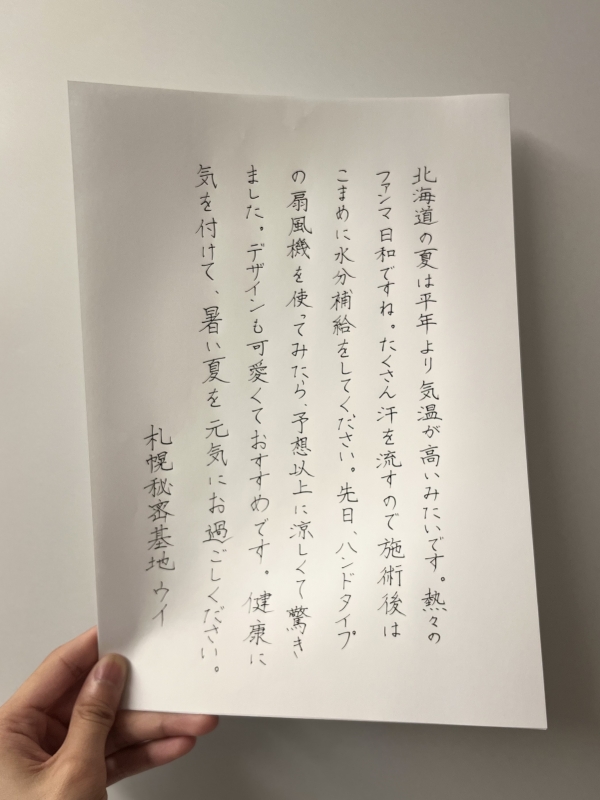 北海道の夏は平年より気温が高いみたいです。熱々の
ファンマ日和ですね。たくさん汗を流すので施術後は
こまめに水分補給をしてください。先日、ハンドタイプ
の扇風機を使ってみたら、予想以上に涼しくて驚き
ました。デザインも可愛くておすすめです。健康に
気を付けて、暑い夏を元気にお過ごしください。
札幌秘密基地 ウイ